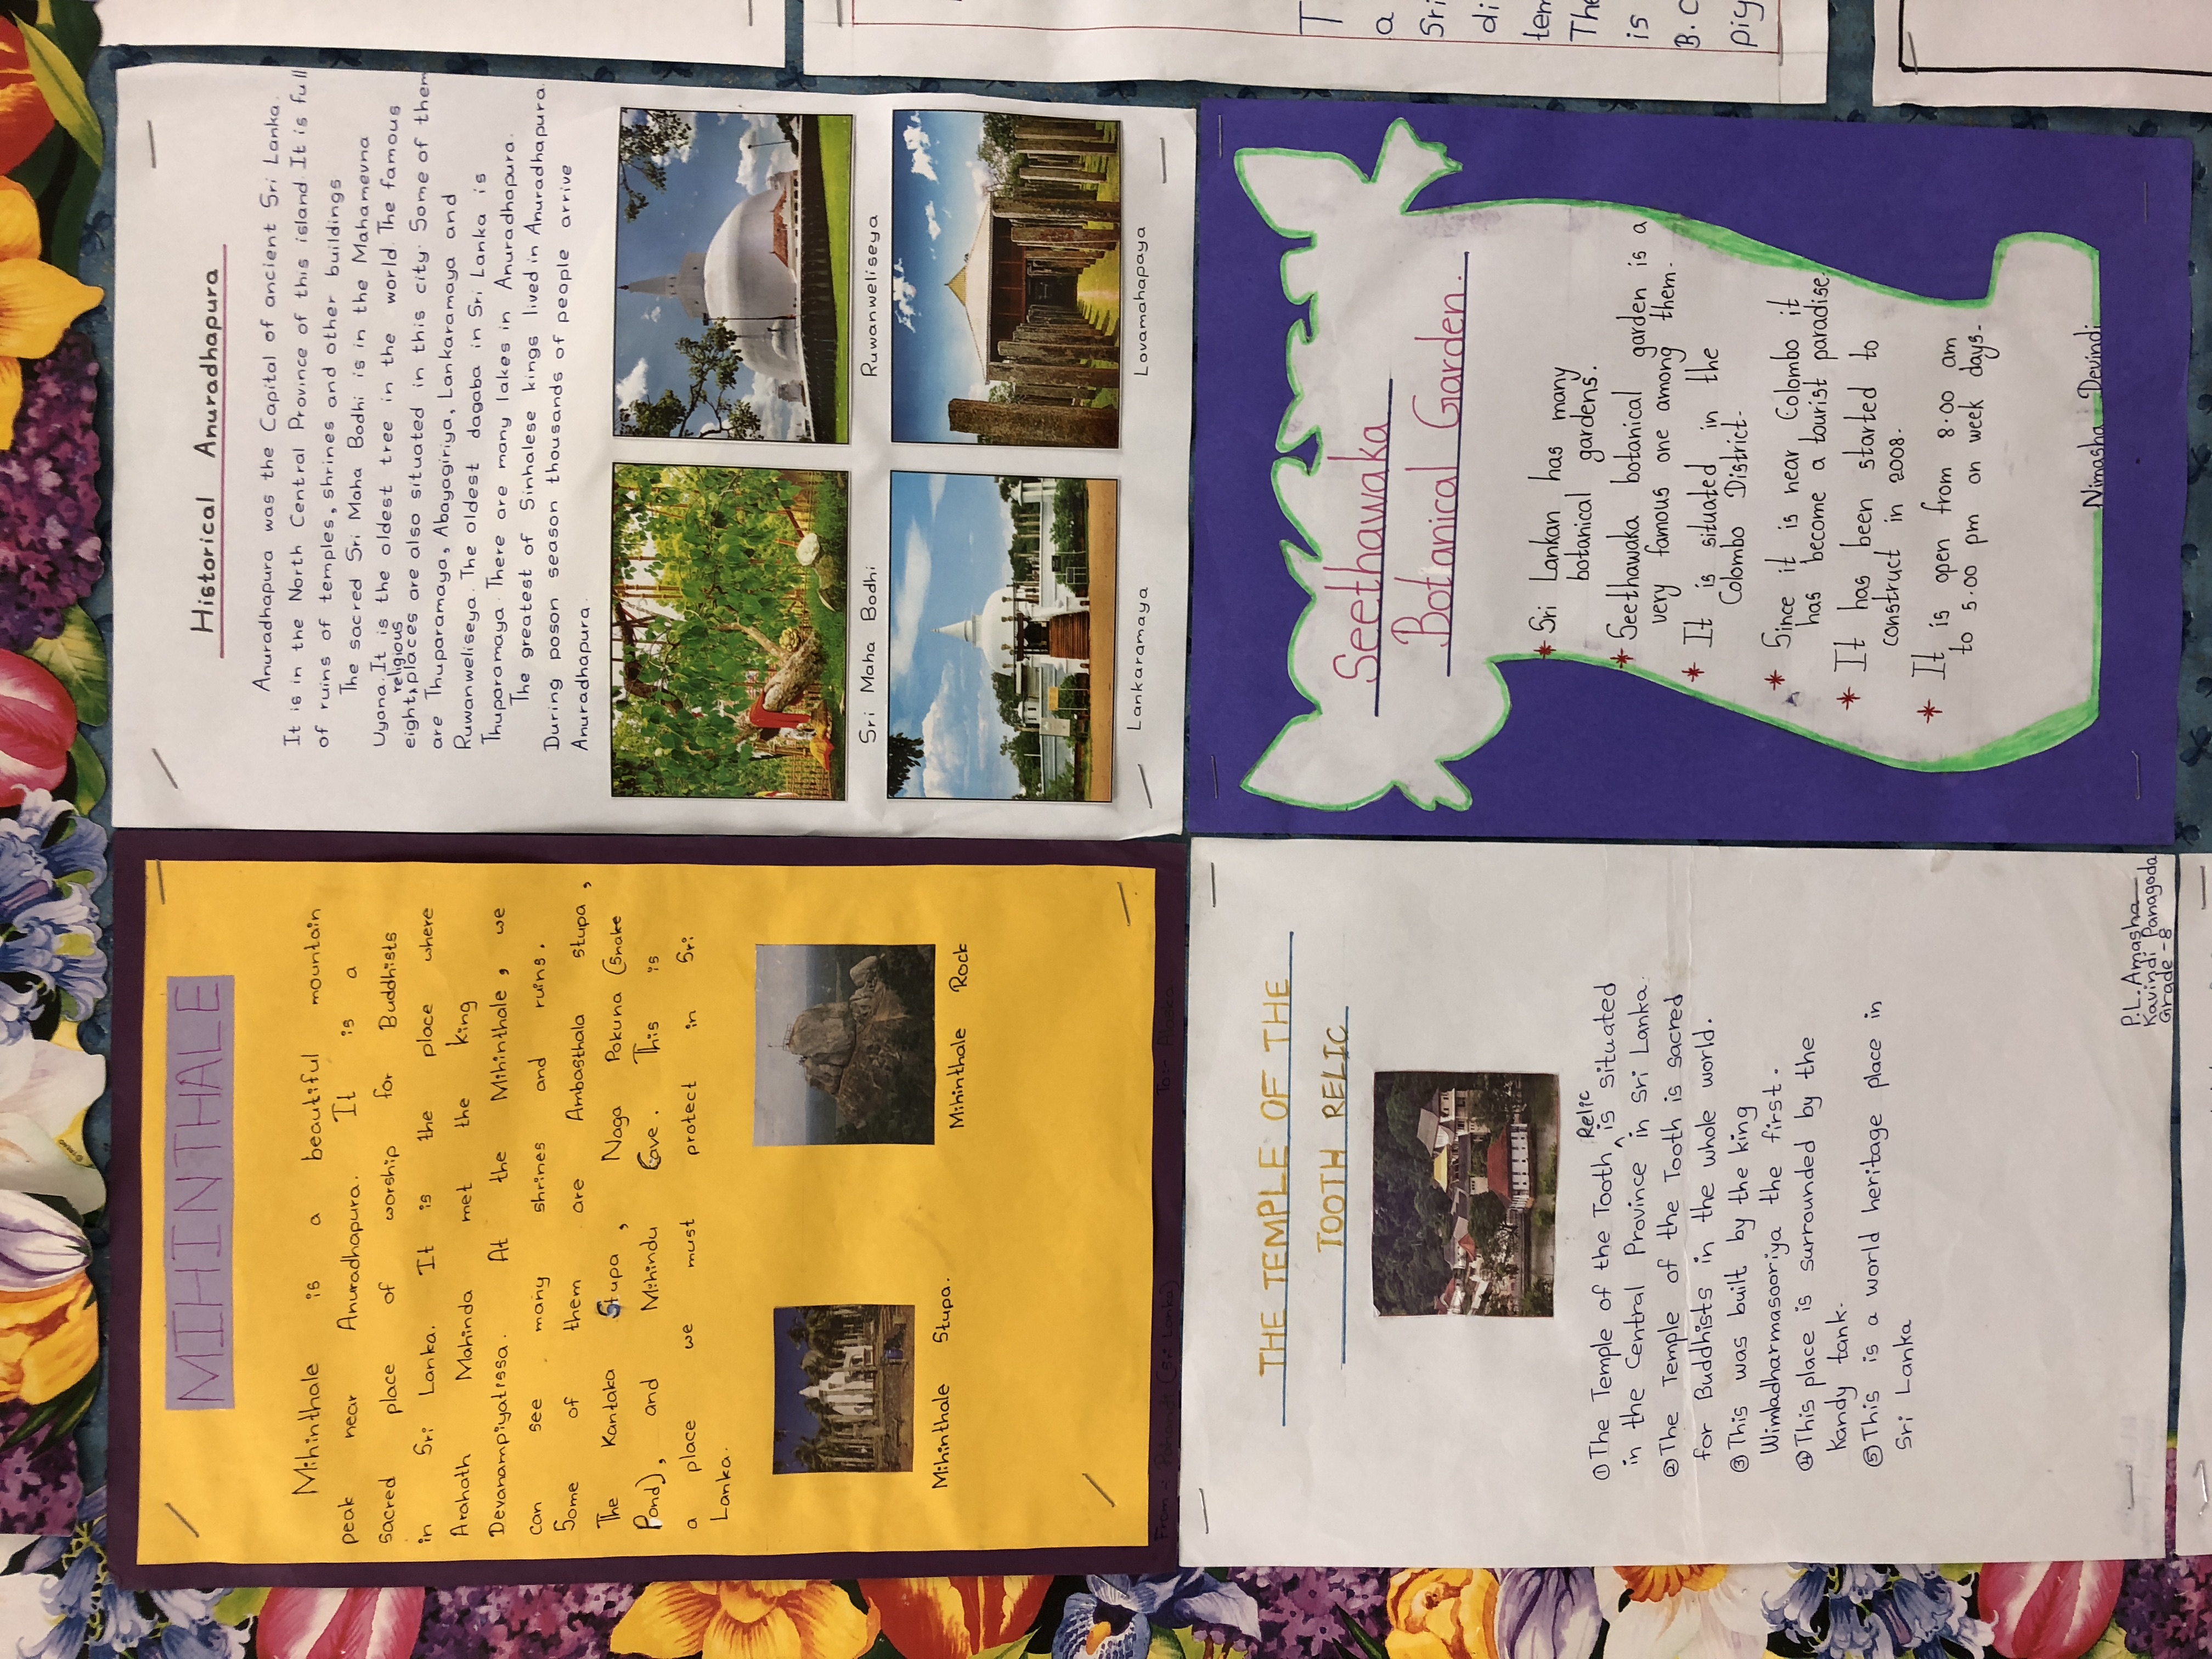 MIHINTHALE
Mihinthale is a beautiful mountain
peak near Anuradhapura. It is a
sacred place of worship for Buddhists
in Sri Lanka. It is the place where
Arahath Mahinda met the king
Devanampiyatissa. At the Mihinthale, we
can see many shrines and ruins.
Some of them are Ambasthala stupa,
The Kantaka Stupa, Naga Pokuna (Snake
Pond), and Mihindu Cave. This is
a place we must protect in Sri
Lanka.
Mihinthale Stupa.
Mihinthale Rock
From :- Pahandi (Sri Lanka)
To:- Alaska
Historical Anuradhapura
Anuradhapura was the Capital of ancient Sri Lanka.
It is in the North Central Province of this island. It is full
of ruins of temples, shrines and other buildings
The sacred Sri Maha Bodhi is in the Mahamevna
Uyana. It is the oldest tree in the world. The famous
religious
eight places are also situated in this city. Some of them
are Thuparamaya, Abayagiriya, Lankaramaya and
Ruwanweliseya. The oldest dagaba in Sri Lanka is
Thuparamaya. There are many lakes in Anuradhapura.
The greatest of Sinhalese kings lived in Anuradhapura.
During poson season thousands of people arrive
Anuradhapura.
Sri Maha Bodhi
Ruwanweliseya
Lankaramaya
Lovamahapaya
THE TEMPLE OF THE
TOOTH RELIC
Relic
① The Temple of the Tooth ^ is situated
in the Central Province in Sri Lanka.
② The Temple of the Tooth is sacred
for Buddhists in the whole world.
③ This was built by the king
Wimladharmasoriya the first.
④ This place is surrounded by the
Kandy tank.
⑤ This is a world heritage place in
Sri Lanka
P.L. Amasha
Kavindi Panagoda
Grade - 8
Seethawaka
Botanical Garden.
* Sri Lankan has many
botanical gardens.
* Seethawaka botanical garden is a
very famous one among them.
* It is situated in the
Colombo District.
* Since it is near Colombo it
has become a tourist paradise.
* It has been started to
construct in 2008.
* It is open from 8.00 am
to 5.00 pm on week days.
Nimasha Devindi
T
a
Sri
di
tem
The
is
B.C
piy